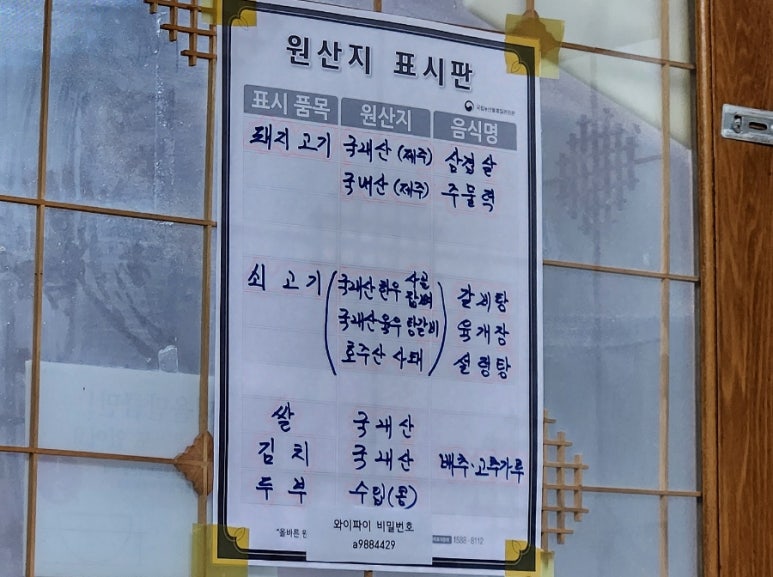 원산지 표시판
국립농산물품질관리원
표시 품목 원산지 음식명
돼지 고기 국내산 (제주) 삼겹살
국내산 (제주) 주물럭
쇠 고기 국내산 한우 사골 잡뼈 갈비탕
국내산 육우 탕갈비 육개장
호주산 사태 설렁탕
쌀 국내산
김치 국내산 배추·고추가루
두부 수입(콩)
와이파이 비밀번호
a9884429
"올바른 원
1588-8112